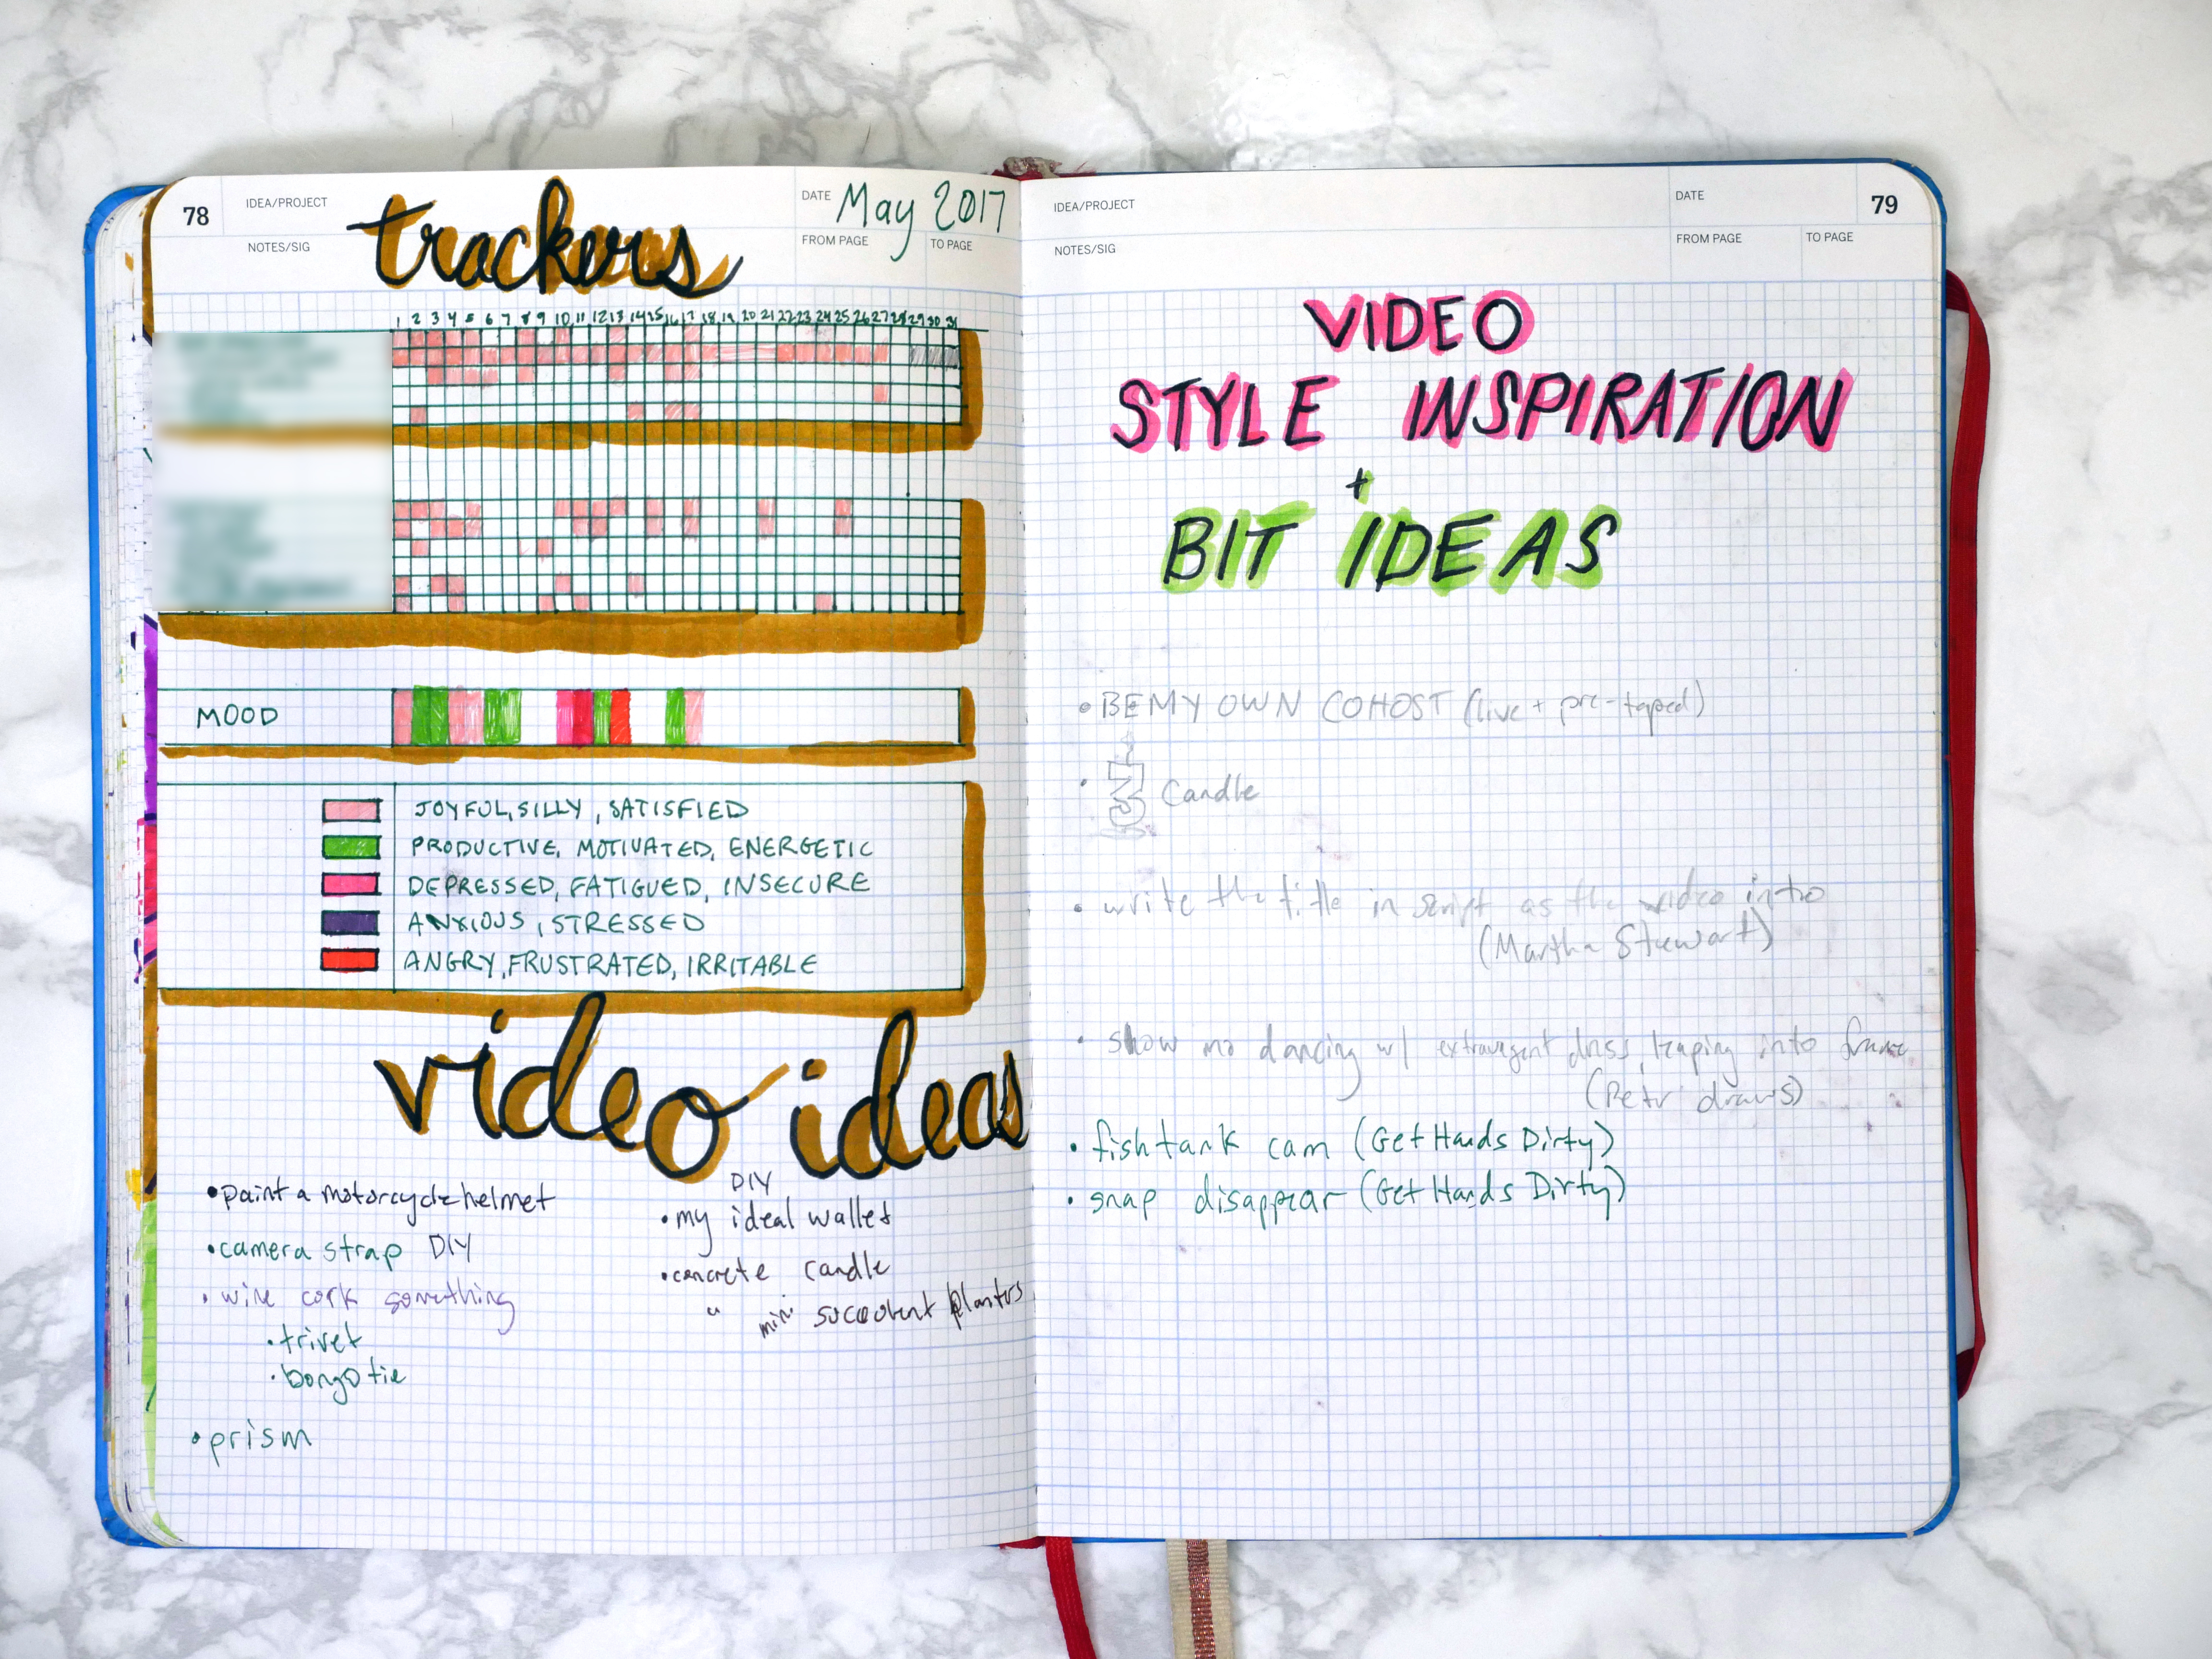 78
IDEA/PROJECT
trackers
DATE May 2017
NOTES/SIG
FROM PAGE
TO PAGE
1 2 3 4 5 6 7 8 9 10 11 12 13 14 15 16 17 18 19 20 21 22 23 24 25 26 27 28 29 30 31
MOOD
JOYFUL, SILLY, SATISFIED
PRODUCTIVE, MOTIVATED, ENERGETIC
DEPRESSED, FATIGUED, INSECURE
ANXIOUS, STRESSED
ANGRY, FRUSTRATED, IRRITABLE
video ideas
•paint a motorcycle helmet
•camera strap DIY
•wine cork something
•trivet
•prism
DIY
•my ideal wallet
•concrete candle
" mini succulent planters
IDEA/PROJECT
DATE
79
NOTES/SIG
FROM PAGE
TO PAGE
VIDEO
STYLE INSPIRATION
+
BIT IDEAS
•BE MY OWN COHOST (live + pre-taped)
• Candle
•write the title in script as the video intro
(Martha Stewart)
•show me dancing w/ extravagent dress, leaping into frame
(Peter draws)
•fish tank cam (Get Hands Dirty)
•snap disappear (Get Hands Dirty)